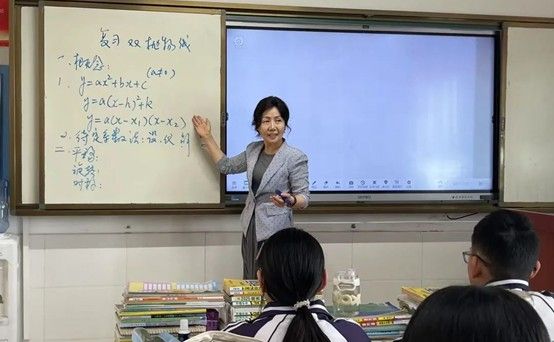 复习 双 抛物线
一、概念:
1. y=ax²+bx+c (a≠0)
y=a(x-h)²+k
y=a(x-x₁)(x-x₂)
2. 待定系数法:设、代
二、平移:
旋转:
对称: